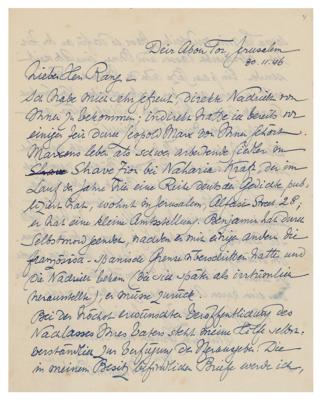 Deir Abou Tor, Jerusalem
30.11.46
Lieber Herr Rang –
Ich habe mich gefreut, direkte Nachricht von
Ihnen zu bekommen; indirekt hatte ich bereits vor
einiger Zeit durch Leopold Marx von Ihnen gehört.
Marxens leben als schwer arbeitende Siedler in
Shave Zion bei Naharia. Kraft, der im
Lauf der Jahre hier eine Reihe deutscher Gedichte pub-
liziert hat, wohnt in Jerusalem, Alfasi Street 28,
er hat eine kleine Amtsstellung. Benjamin hat durch
Selbstmord geendet, nachdem er mit einigen andern die
französisch-spanische Grenze überschritten hatte und
die Nachricht bekam (die sich später als irrtümlich
herausstellte), er müsse zurück.
Bei der höchst erwünschten Veröffentlichung des
Nachlasses Ihres Vaters steht meine Hilfe selbst-
verständlich zur Verfügung der Herausgeber. Die
in meinem Besitz befindlichen Briefe werde ich,